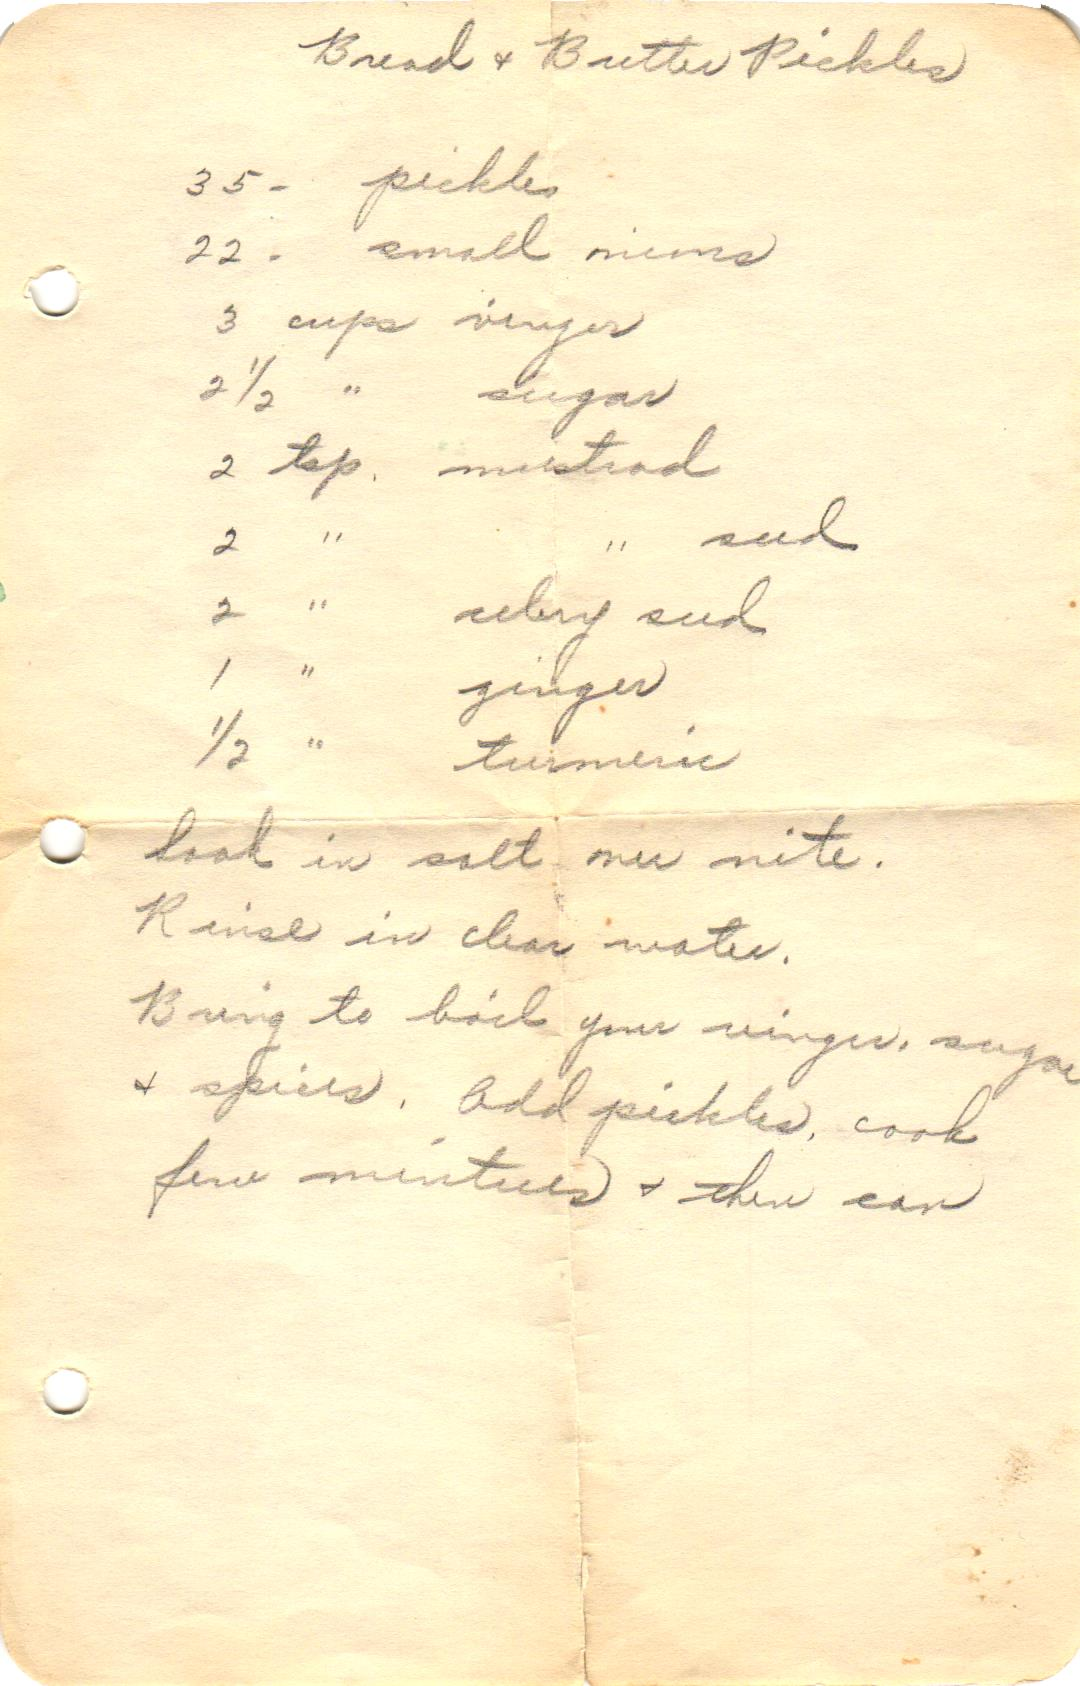 Bread + Butter Pickles
35 - pickles
22 - small onions
3 cups vinger
2 1/2 " sugar
2 tsp. mustrad
2 " " seed
2 " celery seed
1 " ginger
1/2 " turmeric
Soak in salt over nite.
Rinse in clear water.
Bring to boil your vinger, sugar
+ spices. Add pickles, cook
few mintues + then can